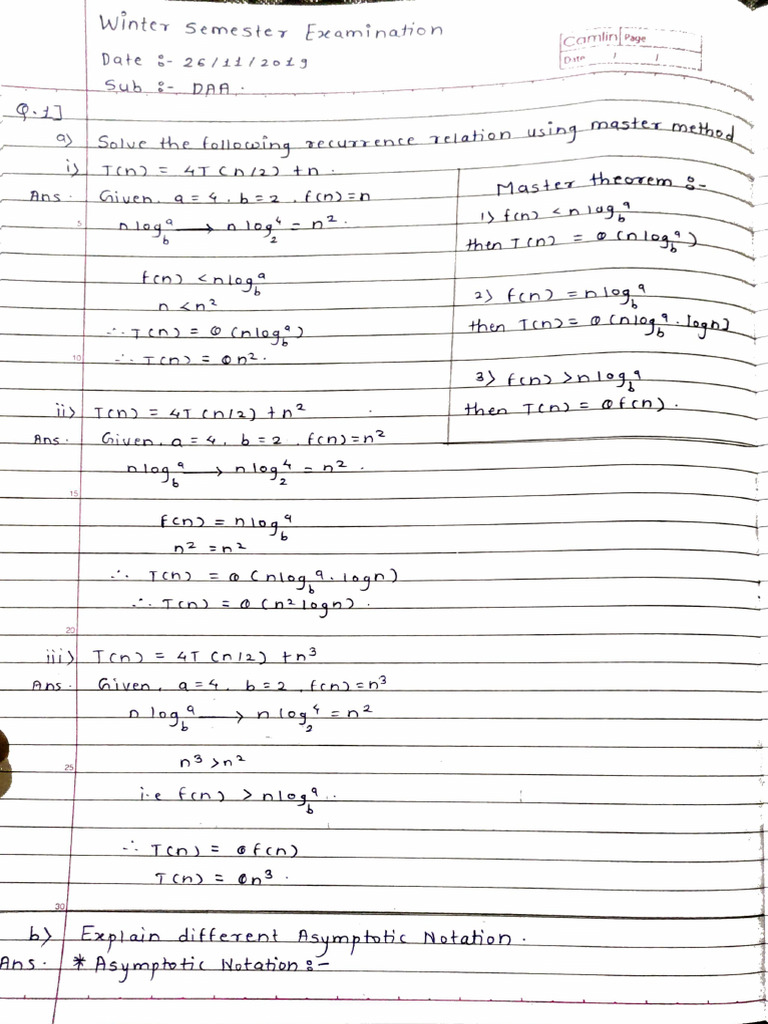 Winter Semester Examination
Camlin Page
Date / /
Date :- 26/11/2019
Sub :- DAA.
Q.1]
a) Solve the following recurrence relation using master method
i) T(n) = 4T(n/2) + n.
Ans. Given, a=4, b=2, f(n)=n
n log_b^a → n log_2^4 = n².
f(n) < n log_b^a
n < n²
∴ T(n) = Θ(n log_b^a)
∴ T(n) = Θn².
Master theorem :-
1) f(n) < n log_b^a
then T(n) = Θ(n log_b^a)
2) f(n) = n log_b^a
then T(n) = Θ(n log_b^a . logn)
3) f(n) > n log_b^a
then T(n) = Θf(n).
ii) T(n) = 4T(n/2) + n²
Ans. Given, a=4, b=2, f(n)=n²
n log_b^a → n log_2^4 = n².
f(n) = n log_b^a
n² = n²
∴ T(n) = Θ(n log_b^a . logn)
∴ T(n) = Θ(n² logn).
iii) T(n) = 4T(n/2) + n³
Ans. Given, a=4, b=2, f(n)=n³
n log_b^a → n log_2^4 = n²
n³ > n²
i.e f(n) > n log_b^a..
∴ T(n) = Θf(n)
T(n) = Θn³.
b) Explain different Asymptotic Notation.
Ans. * Asymptotic Notation :-
5
10
15
20
25
30